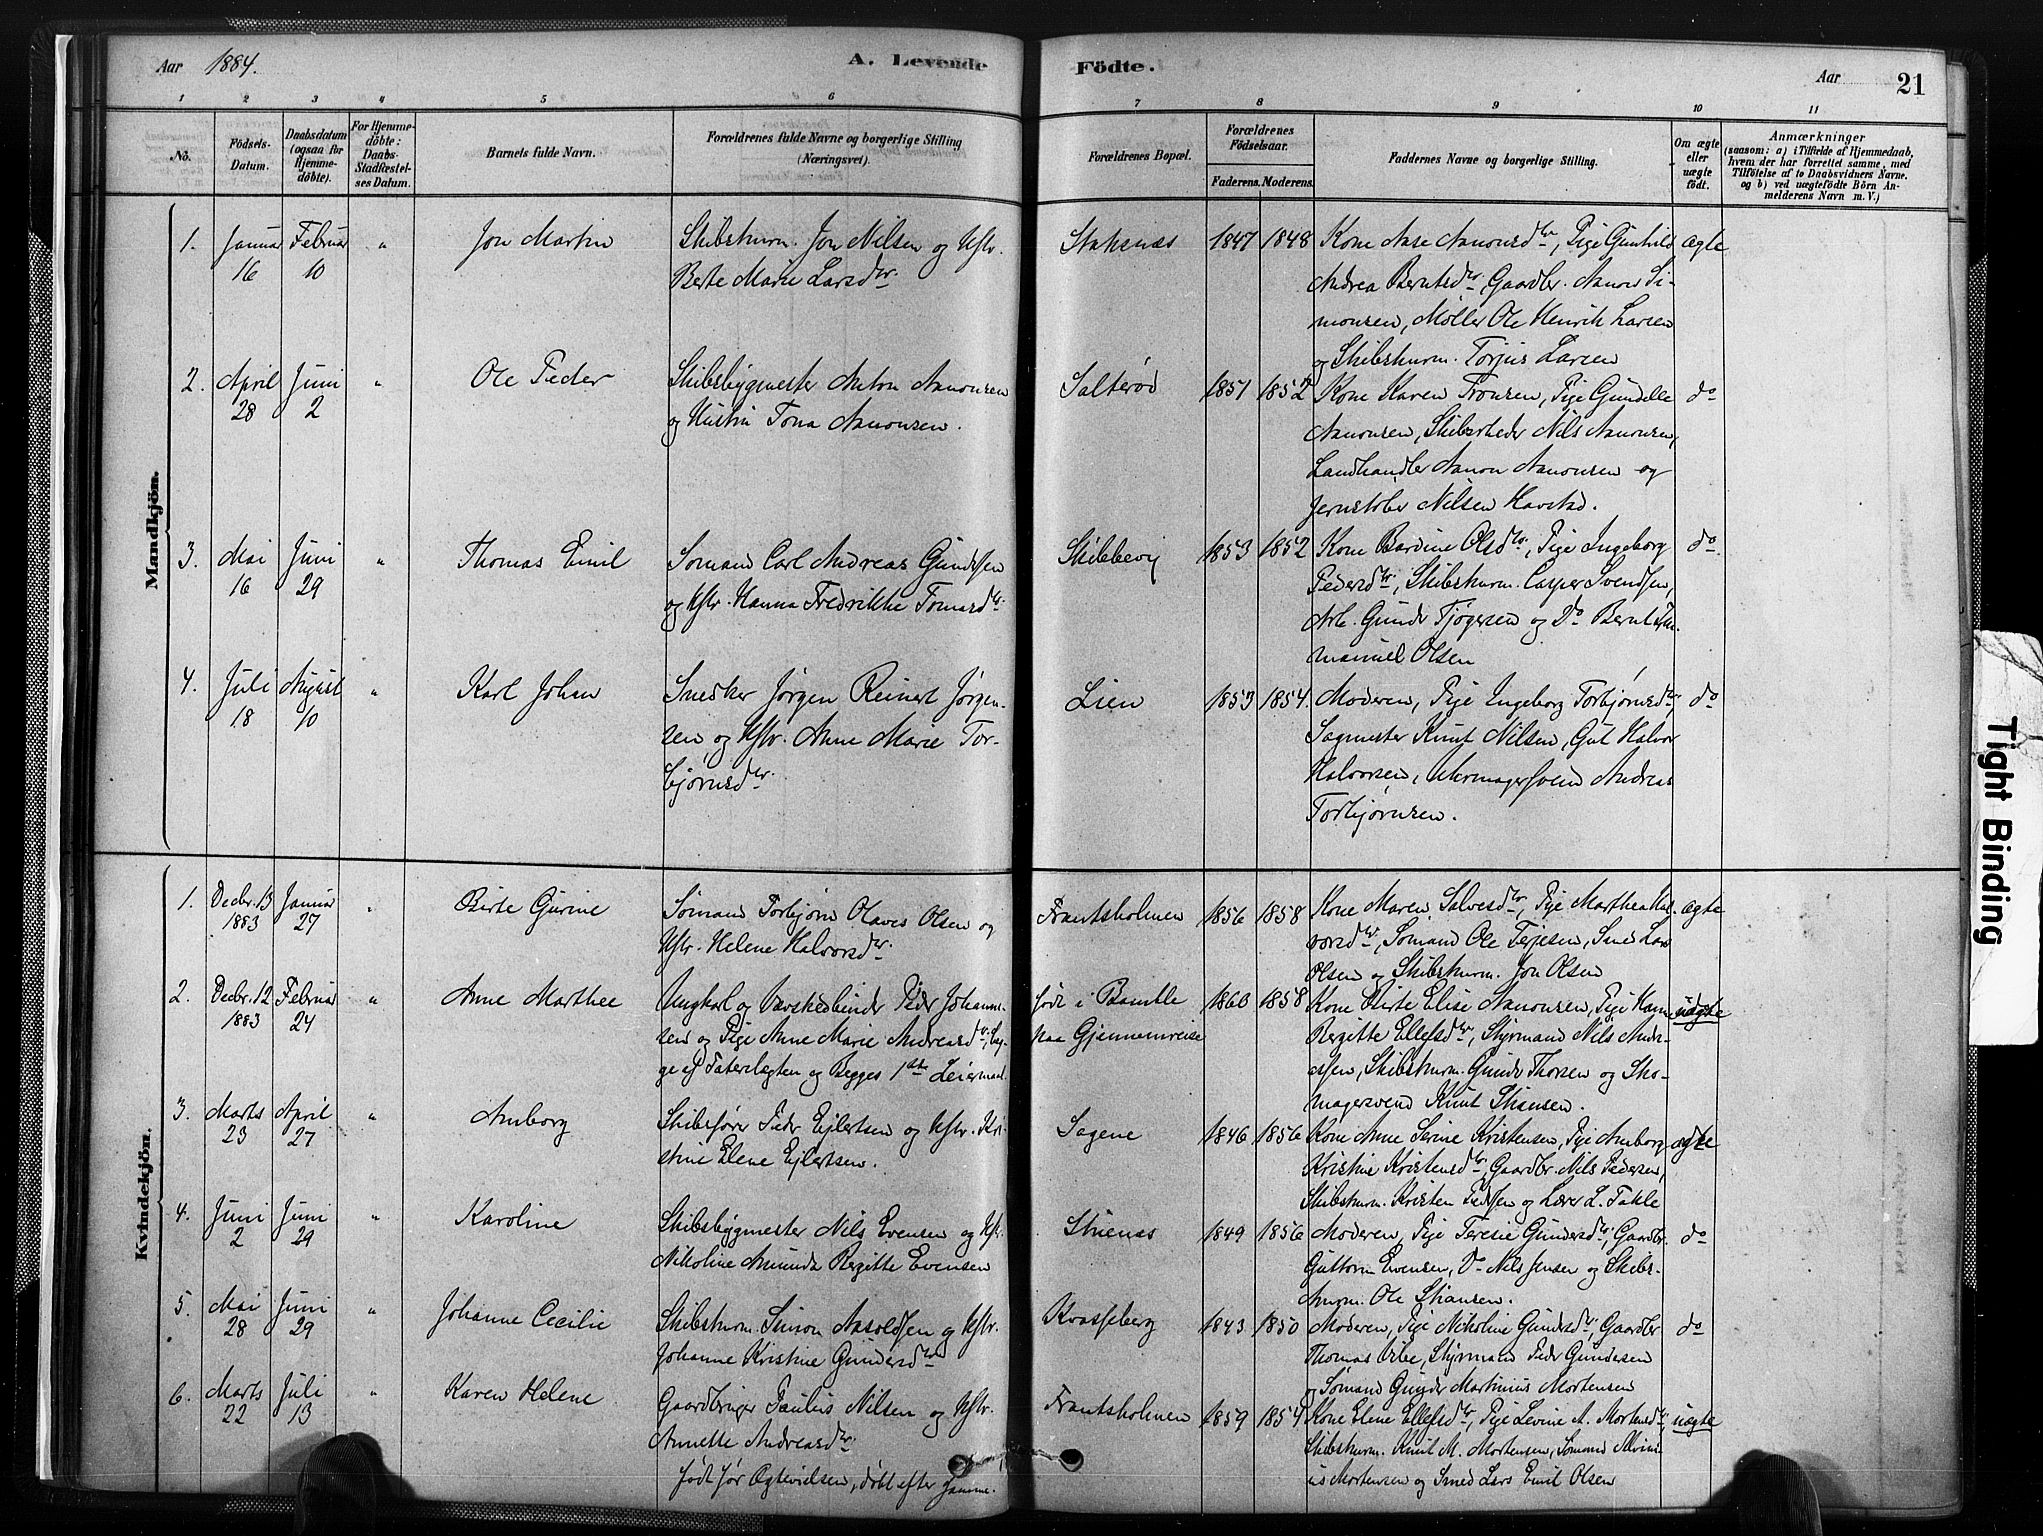 Aar 1884.
A. Levende
Födte.
Aar
21
1 2 3 4 5 6 7 8 9 10 11
No.
Födsels-Datum.
Daabsdatum (ogsaa för Hjemme-döbte).
For Hjemme-döbte: Daabs-Stadfæstel-ses Datum.
Barnets fulde Navn.
Forældrenes fulde Navne og borgerlige Stilling (Næringsvei).
Forældrenes Bopæl.
Forældrenes Födselsaar.
Faderens. Moderens.
Faddernes Navne og borgerlige Stilling.
Om ægte eller uægte födt.
Anmærkninger
(saasom: a) i Tilfælde af Hjemmedaab, hvem der har forrettet samme, med Tilföielse af to Daabsvidners Navne, og b) ved uægtefödte Börn An-melderens Navn m. V.)
Mandkjön.
1. Januar 16 Februar 10 " Jon Martin
Skibstmrm. Jon Nilsen og Hstr.
Berte Marie Larsdtr.
Staksnæs 1847 1848
Kone Aase Aanonsdtr, Pige Gunhild
Andrea Berntsdtr, Gaardbr. Aanon Si-
monsen, Møller Ole Henrik Larsen
og Skibstmrm. Torjus Larsen
ægte
2. April 28 Juni 2 " Ole Peder
Skibsbygmester Anton Aanonsen
og Hustru Tona Aanonsen.
Salterød 1851 1852
Kone Karen Tronsen, Pige Gundelle
Aanonsen, Skibsrheder Nils Aanonsen,
Landhandler Aanon Aanonsen og
Jernstøber Nilsen Havstad.
do
3. Mai 16 Juni 29 " Thomas Emil
Sømand Carl Andreas Gundersen
og Hstr. Hanna Fredrikke Tomasdtr.
Skibbevig 1853 1852
Kone Bardine Olsdtr, Pige Ingeborg
Pedersdtr, Skibstmrm. Casper Svendsen,
Arb. Gunder Tjøgersen og Do Bernt Em-
manuel Olsen
do
4. Juli 18 August 10 " Karl Johan
Snedker Jørgen Reinert Jørgen-
sen og Hstr. Anne Marie Tor-
bjørnsdtr.
Lien 1853 1854.
Moderen, Pige Ingeborg Torbjørnsdtr,
Sagmester Knut Nilsen, Gut Halvor
Halvorsen, Uhrmagersvend Andreas
Torbjørnsen.
do
Kvindekjön.
1. Decbr. 13 1883 Januar 27 " Birte Gurine
Sømand Torbjørn Olaves Olsen og
Hstr. Helene Halvorsdtr.
Frantsholmen 1856 1858
Kone Maren Salvesdtr, Pige Marthea Hal-
vorsdtr, Sømand Ole Terjesen, Smed Lars
Olsen og Skibstmrm. Jon Olsen
ægte
2. Decbr. 12 1883 Februar 24 " Anne Marthee
Ungkarl og Vævskedbinder Peder Johann-
sen og Pige Anne Marie Andreasdtr, beg-
ge af Taterslægten og Begges 1ste Leiermaal
født i Bamble
paa Gjennemreise 1860 1858
Kone Birte Elise Aanonsen, Pige Hanne
Bergitte Ellefsdtr, Styrmand Nils Andr-
assen, Skibstmrm. Gunder Thorsen og Sko-
magersvend Knut Stiansen.
uægte
3. Marts 23 April 27 " Amborg
Skibsfører Peder Ejlertsen og Hstr. Kri-
stine Elene Ejlertsen.
Sagene 1846 1856
Kone Anne Serine Kristensen, Pige Amborg
Kristine Kristensdtr, Gaardbr. Nils Pedersen,
Skibstmrm. Kristen Pedersen og Lærer L. Takle
ægte
4. Juni 2 Juni 29 " Karoline
Skibsbygmester Nils Evensen og Hstr.
Nikoline Amunda Bergitte Evensen
Stuenæs 1849 1856
Moderen, Pige Teresie Gundersdtr, Gaardbr.
Guttorm Evensen, Do Nils Jensen og Skibs-
tmrm. Ole Stiansen.
do
5. Mai 28 Juni 29 " Johanne Cecilie
Skibstmrm. Simon Aasoldsen og Hstr.
Johanne Kristine Gundersdtr
Kvasseberg 1843 1850
Moderen, Pige Nikoline Gundersdtr, Gaardbr
Thomas Orbe, Styrmand Peder Gundersen
og Sømand Gunder Martinius Mortensen
do
6. Marts 22 Juli 13 " Karen Helene
Gaardbruger Paulus Nilsen og Hstr.
Annette Andreasdtr
født før Ægtevielsen, døbt efter samme.
Frantsholmen 1859 1854
Kone Elene Ellefsdtr, Pige Levine A. Mortensdtr,
Skibstmrm. Knut M. Mortensen, Sømand Alvini-
us Mortensen og Smed Lars Emil Olsen
uægte
Tight Binding